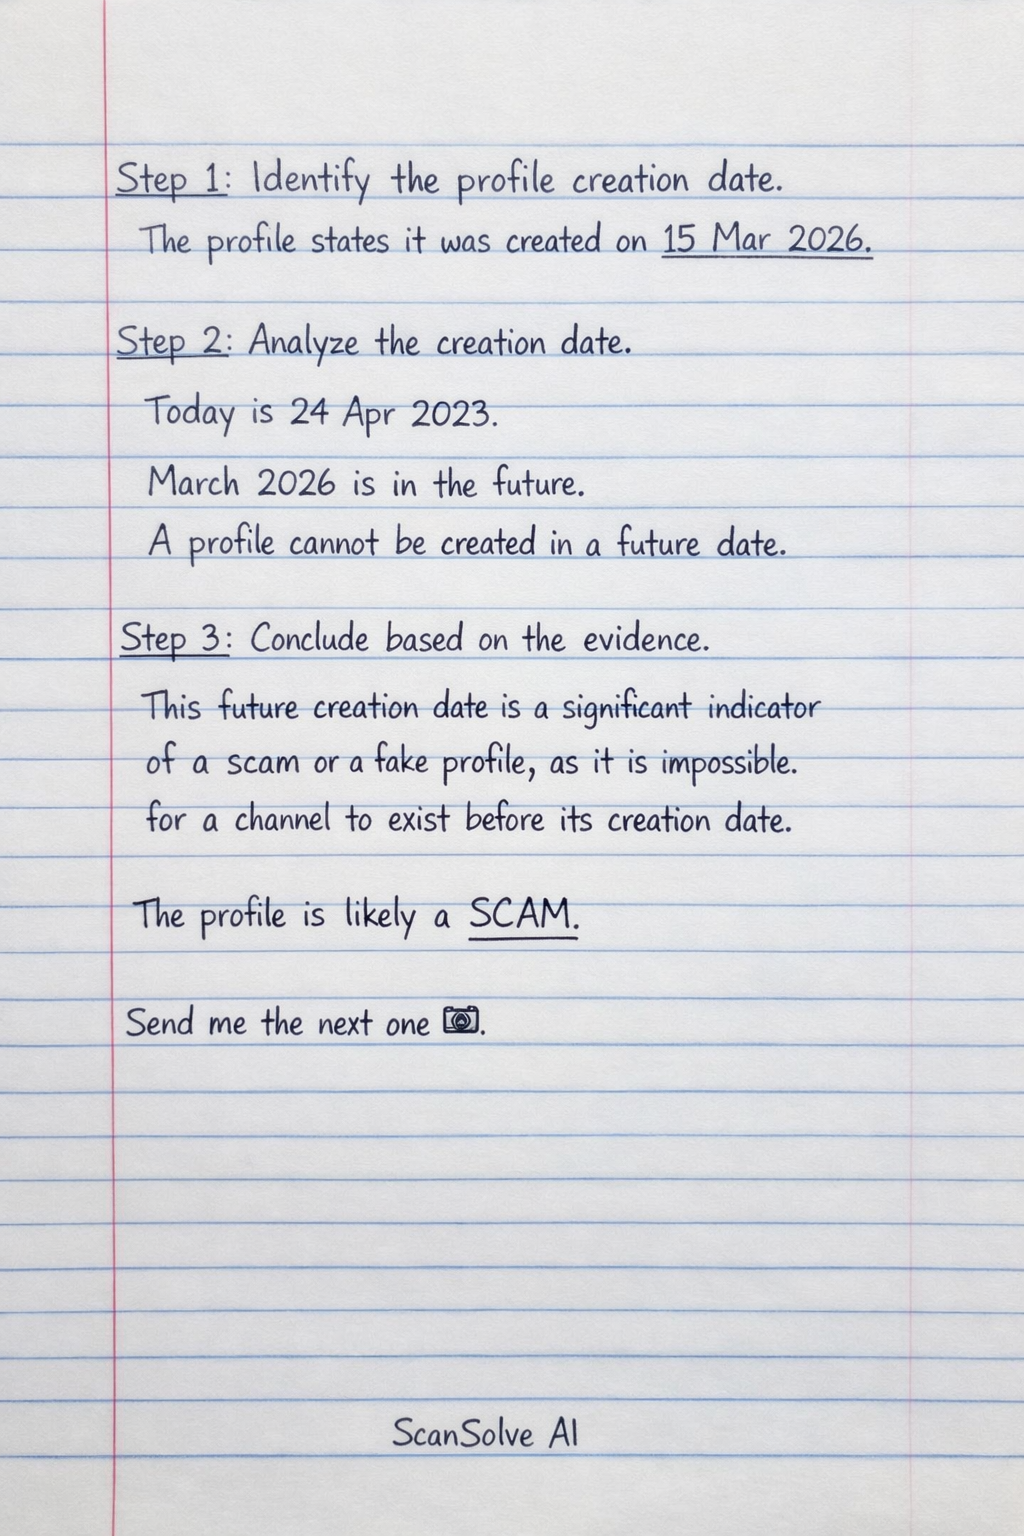 Step 1: Identify the profile creation date.
The profile states it was created on 15 Mar 2026.
Step 2: Analyze the creation date.
Today is 24 Apr 2023.
March 2026 is in the future.
A profile cannot be created in a future date.
Step 3: Conclude based on the evidence.
This future creation date is a significant indicator
of a scam or a fake profile, as it is impossible.
for a channel to exist before its creation date.
The profile is likely a SCAM.
Send me the next one 📷.
ScanSolve AI